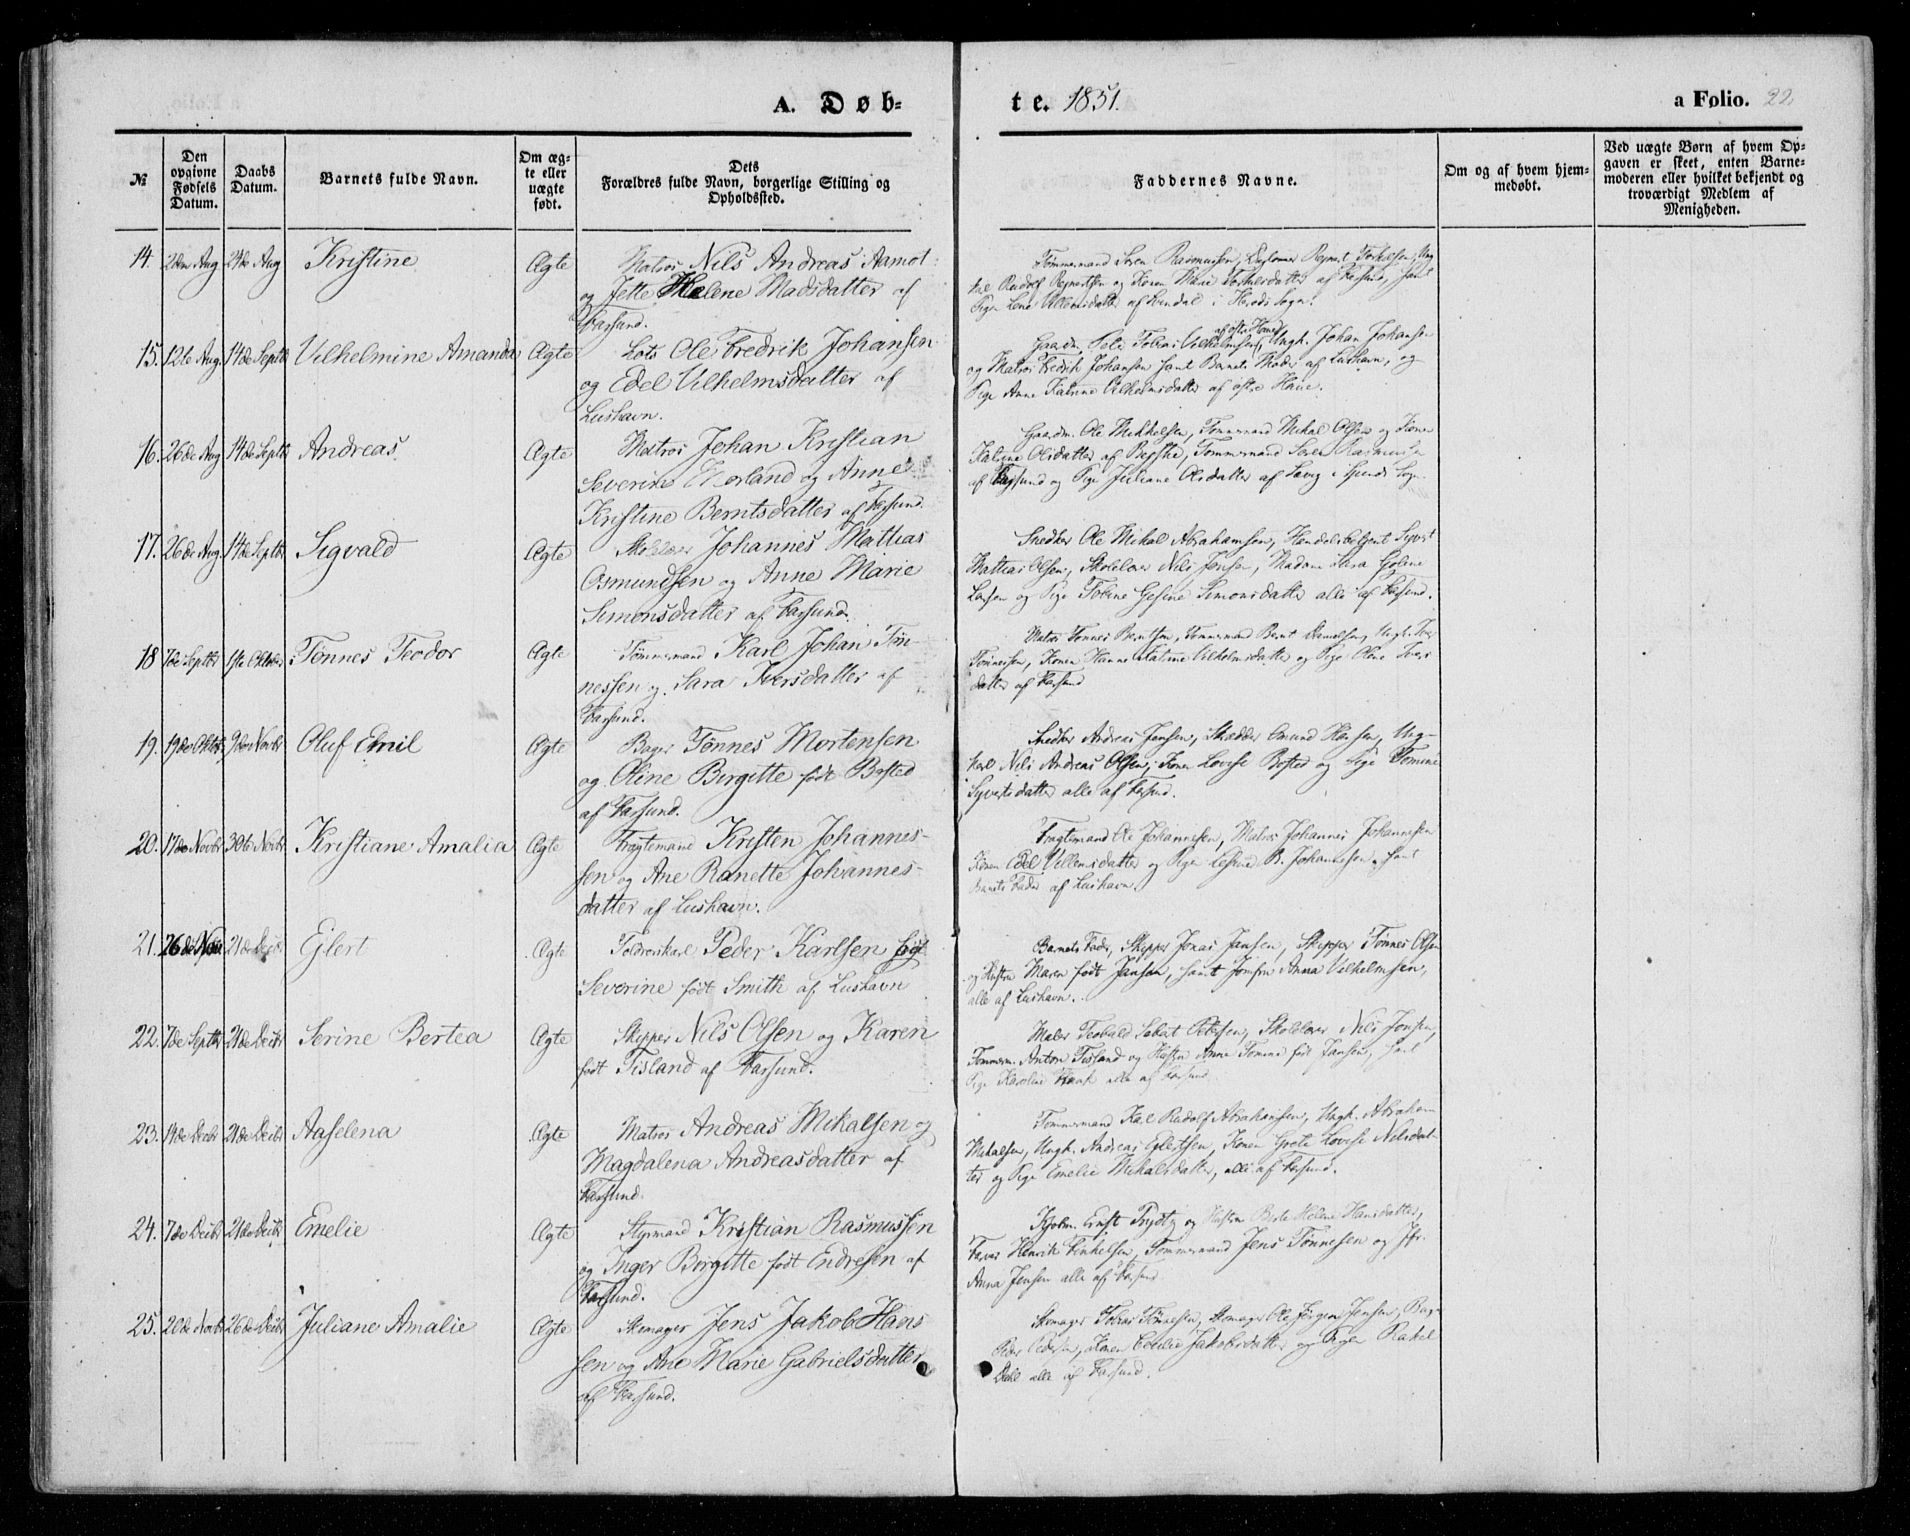 A. Døb=
te. 1851.
a Folio. 22
№
Den opgivne Fødsels Datum.
Daabs Datum.
Barnets fulde Navn.
Om æg-
te eller
uægte
født.
Dets
Forældres fulde Navn, borgerlige Stilling og
Opholdssted.
Faddernes Navne.
Om og af hvem hjem-
medøbt.
Ved uægte Børn af hvem Op-
gaven er skeet, enten Barne-
moderen eller hvilket bekjendt og
troværdigt Medlem af
Menigheden.
14. 2den Aug 24de Aug Kristine Ægte Matros Nils Andreas Aamot
og Jette Helene Madsdatter af
Farsund.
Tømmermand Søren Rasmussen,
Pige Lene Villemsdatter af i Herods Sogn.
15. 12te Aug. 14de Septbr Vilhelmine Amanda Ægte Lots Ole Fredrik Johansen
og Edel Vilhelmsdatter af
Lushavn.
Gaardm. Tobias Vilhelmsen, Ungk. Johan Johansen
og Matros Fredrik Johansen samt Barnets Fader af Lushavn, og
Pige Anne Katrine Vilhelmsdatter af østre Haue.
16. 26de Aug 14de Septbr Andreas. Ægte Matros Johan Kristian
Severin og Anne
Kristine Berntsdatter af Farsund.
Gaardm. Ole Mikkelsen, Tømmermand Mikal Olsen og Konen
Katrine Olsdatter af Tømmermand Søren Rasmussen
af Farsund og Pige Juliane Olsdatter af i Spinds Sogn.
17. 26de Aug. 14de Septbr Sigvald Ægte Skolelærer Johannes Mattias
Osmundsen og Anne Marie
Simonsdatter af Farsund.
Snedker Ole Mikal Abrahamsen, Handelsbetjent Sivert
Mattias Olsen, Skolelærer Nils Jensen, Madam Sara
Larsen og Pige Tobine Gesine Simonsdatter alle af Farsund.
18 7de Septbr 1ste Oktober Tønnes Teodor Ægte Tømmermand Karl Johan Tøn-
nessen og Sara Iversdatter af
Farsund.
Matros Tønnes Berntsen, Tømmermand Bernt Danielsen, Ungk. Iver
Tønnesen, Konen Hanne Katrine Vilhelmsdatter og Pige Oline Ivers
datter af Farsund
19. 19de Oktbr 9de Novbr Oluf Emil Ægte Bager Tønnes Mortensen
og Oline Birgitte født Bøsted
af Farsund.
Snedker Andreas Jansen, Skrædder Hansen, Ung-
karl Nils Andreas Olsen, Konen Lovise Bøsted og Pige Tomine
Syvertsdatter alle af Farsund.
20. 17de Novbr 30te Novbr Kristiane Amalia Ægte Fragtemand Kristen Johannes-
sen og Ane Ranette Johannes-
datter af Lushavn.
Fragtemand Ole Johannesen, Matros Johannes Johannesen
Konen Edel Villemsdatter og Pige B. Johannesen, samt
Barnets Fader af Lushavn.
21. 26de 21de Decbr Ejlert Ægte Toldroerkarl Peder Karlsen og
Severine født Smith af Lushavn
Barnets Fader, Skipper Jonas Jansen, Skipper Tønnes Olsen
og Hustru Maren født Jansen, samt Jomfru Anna Vilhelmsen,
alle af Lushavn.
22. 7de Septbr 21de Decbr Serine Bertea Ægte Skipper Nils Olsen og Karen
født Tisland af Farsund.
Maler Teobald Petersen, Skolelærer Nils Jensen,
Tømmerm. Anton Tisland og Hustru Anne Tomine født Jansen, samt
Pige Karoline alle af Farsund
23. 14de Decbr 21de Decbr Aaselena Ægte Matros Andreas Mikalsen og
Magdalena Andreasdatter af
Farsund.
Tømmermand Karl Rudolf Abrahamsen, Ungk. Abraham
Mikalsen, Ungk. Andreas Eilertsen, Konen Grete Lovise Nilsdat-
ter og Pige Emelie Mikalsdatter, alle af Farsund.
24. 7de Decbr 21de Decbr Emelie Ægte Styrmand Kristian Rasmussen
og Inger Birgitte født Endresen af
Farsund.
Kjøbm. Ernst og Hustru Berte Helene Hansdatter,
Farver Henrik Tømmermand Jens Tønnesen og Jfr.
Anna Jensen alle af Farsund
25. 20de Novbr 26de Decbr Juliane Amalie Ægte Skomager Jens Jakob Hans
sen og Ane Marie Gabrielsdatter
af Farsund.
Skomager Tobias Tønnesen, Skomager Ole Jørgen Jensen,
Peder Pedersen, Konen Jakobsdatter og Pigen Rakel
Dahl alle af Farsund.